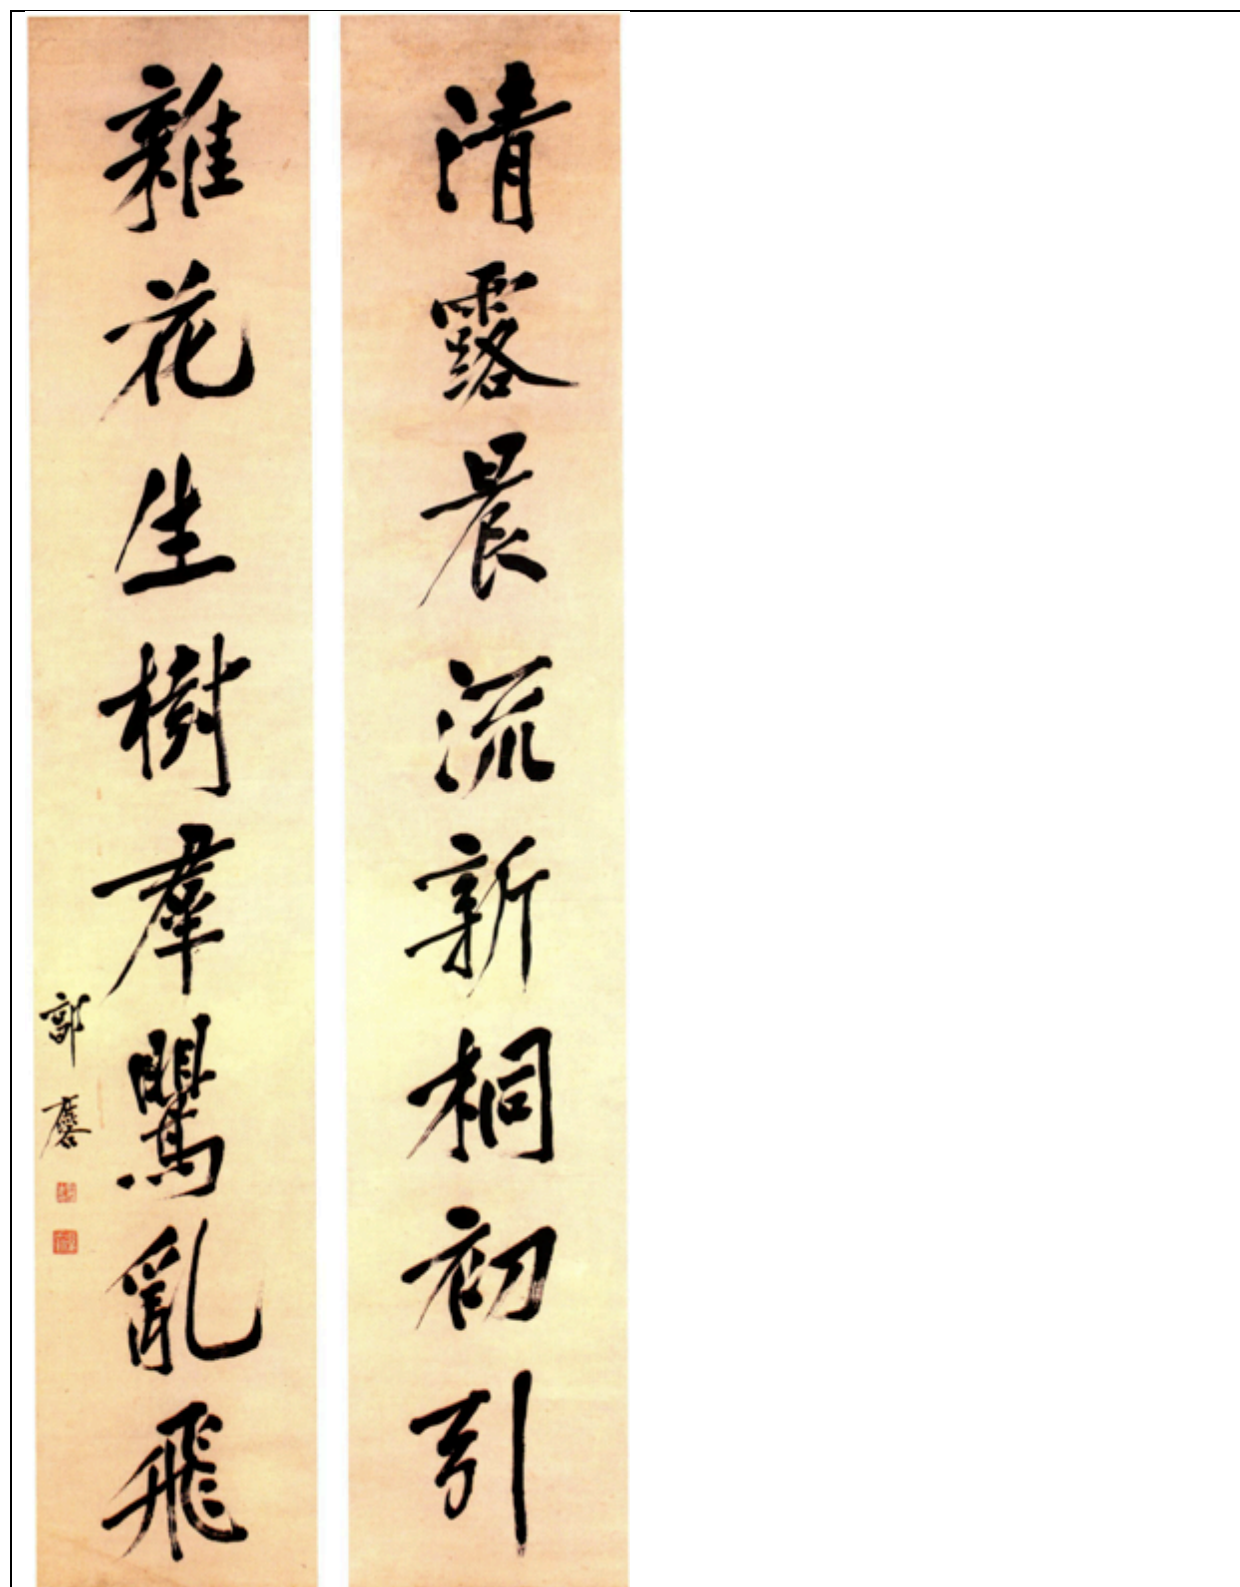 清露晨流新桐初引
雜花生樹羣鶯亂飛
郭麐